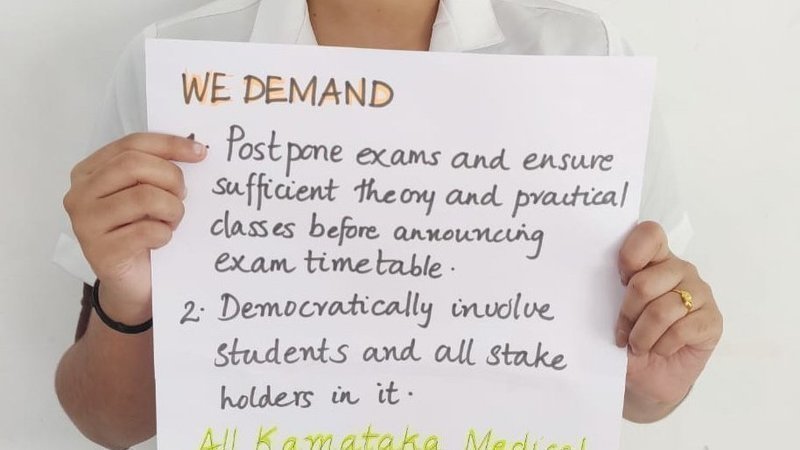 WE DEMAND
1. Postpone exams and ensure
sufficient theory and practical
classes before announcing
exam timetable.
2. Democratically involve
students and all stake
holders in it.
All Karnataka Medical